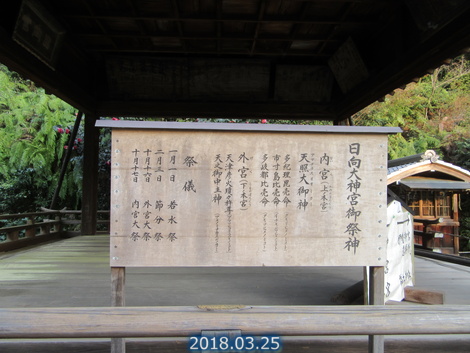 日向大神宮御祭神
内宮(上ノ本宮)
天照大御神
多紀理毘売命
市寸島比売命
多岐都比売命
外宮(下ノ本宮)
天津彦火瓊々杵尊
天之御中主神
祭儀
一月一日 若水祭
二月三日 節分祭
十月十六日 外宮大祭
十月十七日 内宮大祭
2018.03.25